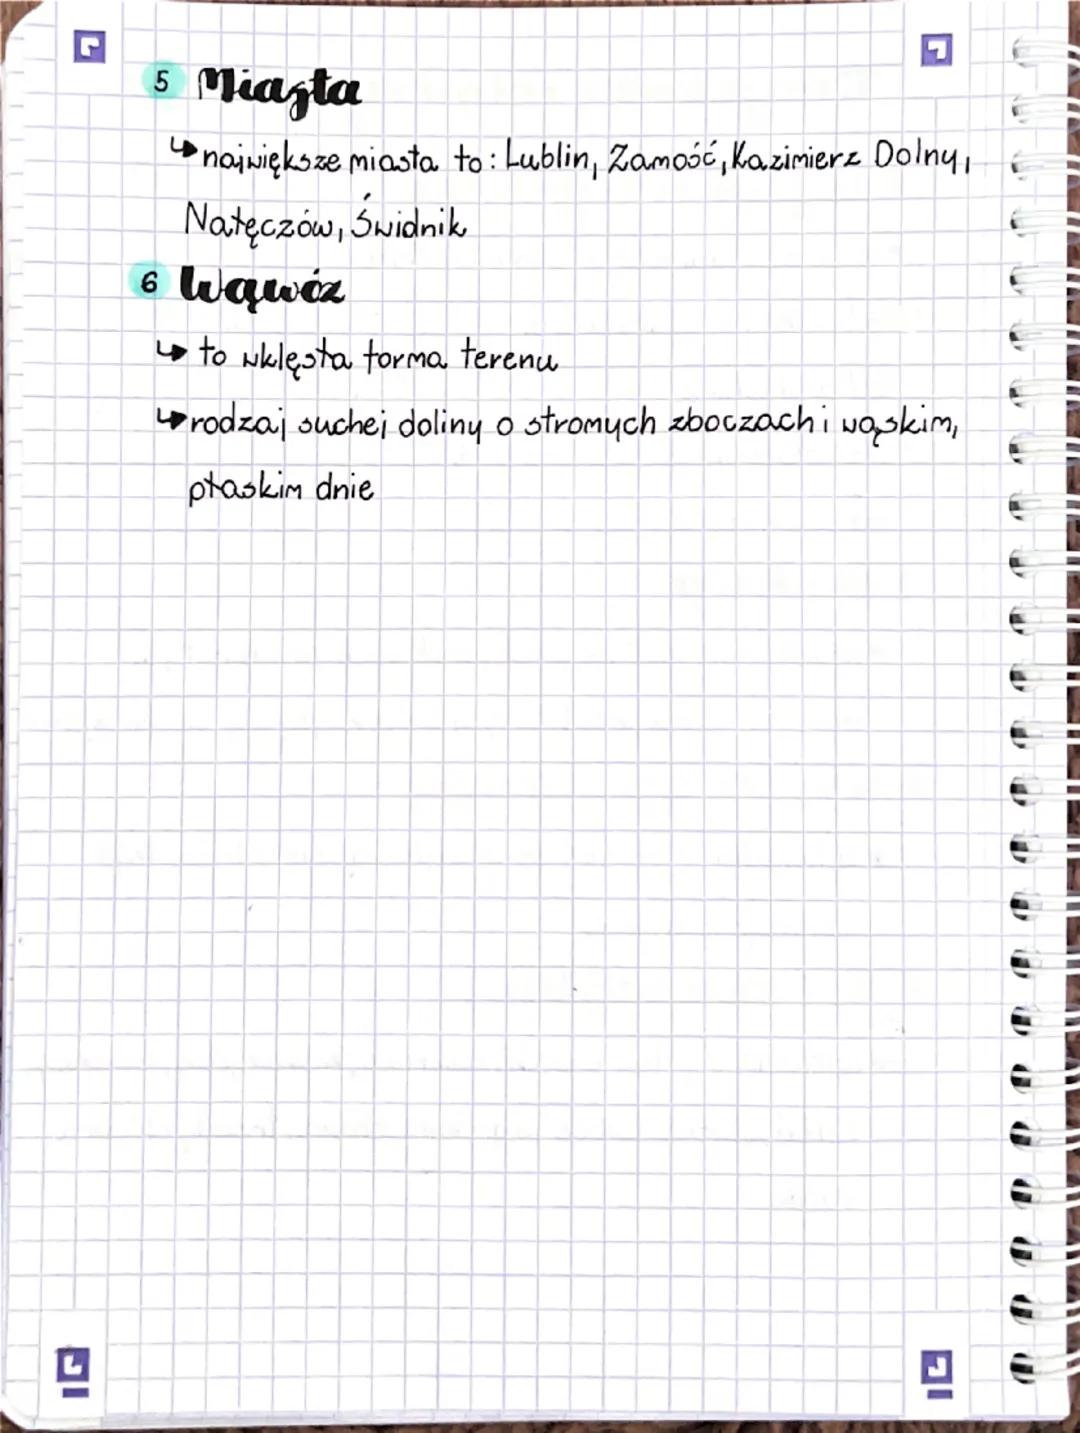 5 Miasta
↳ największe miasta to: Lublin, Zamość, Kazimierz Dolny,
Nałęczów, Świdnik
6 Wąwóz
↳ to wklęsła forma terenu
↳ rodzaj suchej doliny o stromych zboczach i wąskim,
płaskim dnie